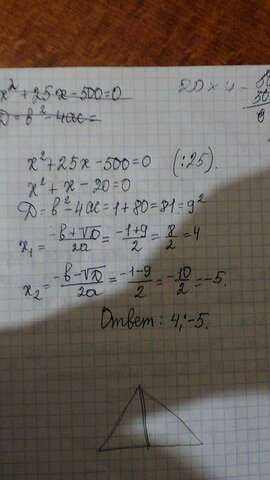 x² + 25x - 500 = 0
D = b² - 4ac =
x² + 25x - 500 = 0 (:25)
x² + x - 20 = 0
D = b² - 4ac = 1 + 80 = 81 = 9²
x₁ = (-b + √D)/2a = (-1+9)/2 = 8/2 = 4
x₂ = (-b - √D)/2a = (-1-9)/2 = -10/2 = -5.
Ответ: 4; -5.